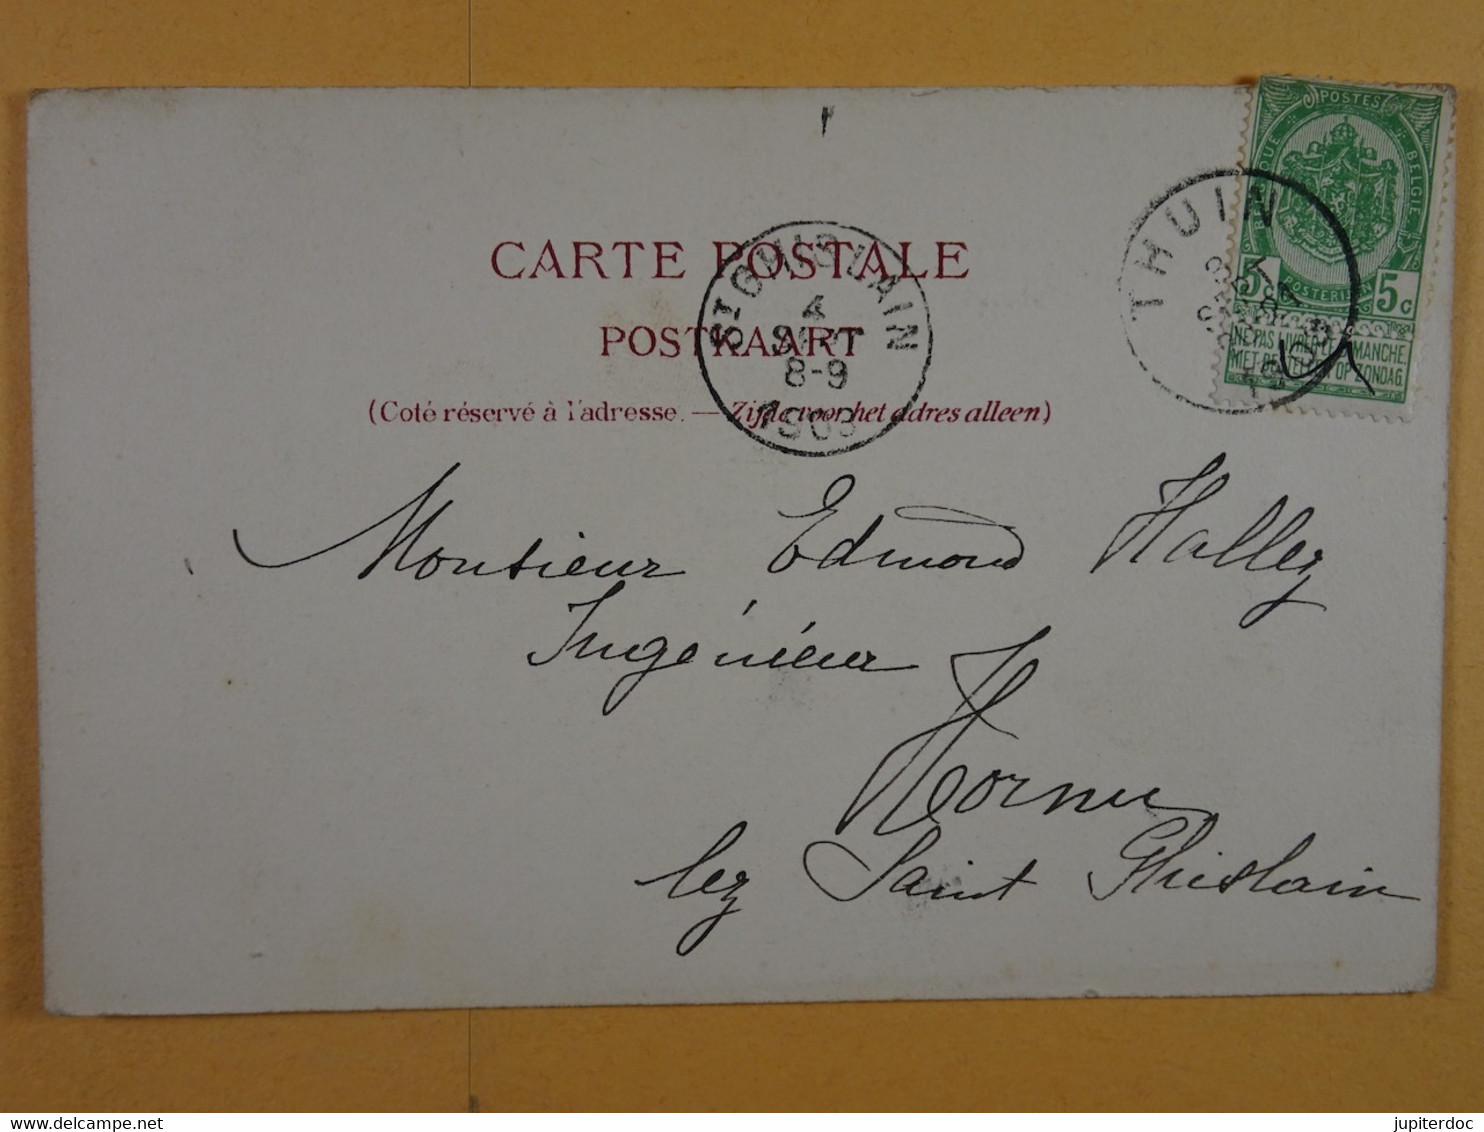 CARTE POSTALE
POSTKAART
(Coté réservé à l'adresse. — Zijde voor het adres alleen)
ST GHISLAIN
4
SEPT
8-9
1903
THUIN
POSTES
BELGIQUE BELGIE
POSTERIJEN
5c 5c
NE PAS LIVRER LE DIMANCHE
NIET BESTELLEN OP ZONDAG
Monsieur Edmond Hallez
Ingénieur
Hornu
lez Saint Ghislain
jupiterdoc